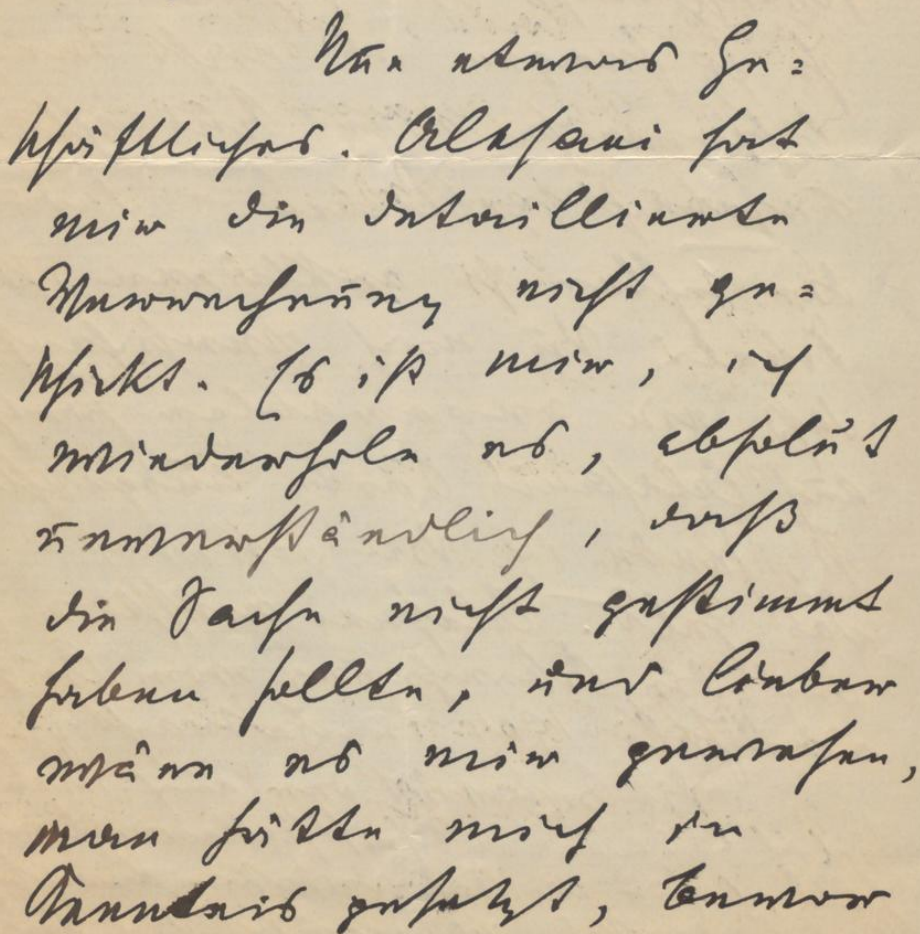 Nun etwas Ge=
schäftliches. Alksavi hat
mir die detaillierte
Verrechnung nicht ge=
schickt. Es ist mir, ich
wiederhole es, absolut
unverständlich, daß
die Sache nicht gestimmt
haben sollte, und lieber
wäre es mir gewesen,
man hätte mich in
Kenntnis gesetzt, bevor